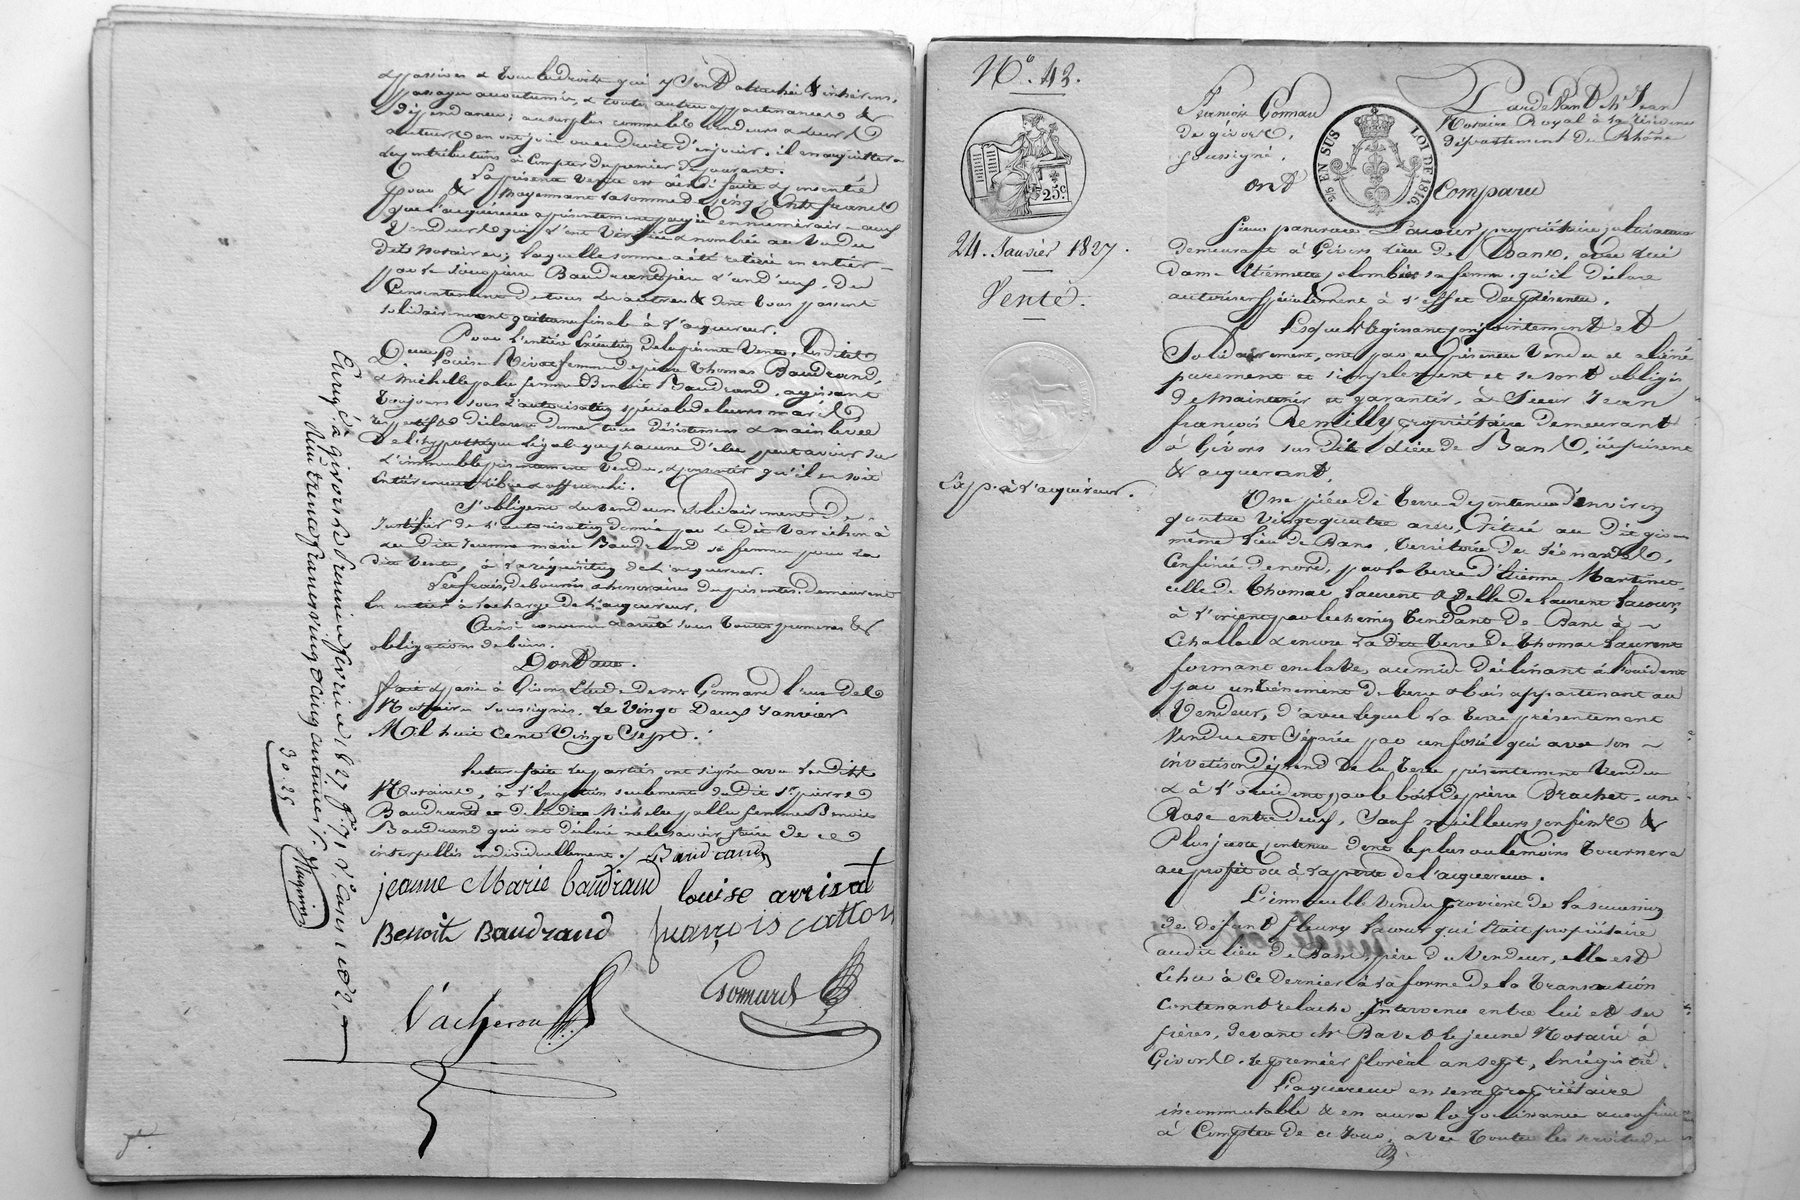 passives & tous les droits qui y sont attachés & inhérens,
passages accoutumés, & toutes autres appartenances &
dépendances; au surplus comme les vendeurs & leurs
auteurs en ont joui ou eu droit d'en jouir. il en acquittera
les contributions à compter du premier de ce courant.
La présente vente est ainsi faite & consentie
pour & moyennant la somme de cinq cents francs
que l'acquéreur a présentement payée en numéraire aux
vendeurs qui l'ont vérifiée & nombrée au vu des
dits notaires; laquelle somme a été retirée en entier
par le sieur pierre Baudrand père l'un d'eux, du
consentement de tous les autres & dont tous passent
solidairement quittance finale à l'acquéreur.
Pour l'entière exécution de la présente vente, lesdites
Dames Louise Rivat femme de pierre Thomas Baudrand,
& Michelle palu femme de Benoit Baudrand, agissant
toujours sous l'autorisation spéciale de leurs maris
respectifs déclarent donner tous désistemens & main levée
de l'hypothèque légale que chacune d'elles peut avoir sur
l'immeuble présentement vendu, & consentir qu'il en soit
entièrement libre & affranchi.
S'obligent les vendeurs solidairement de
justifier de l'autorisation donnée par le dit Varichon à
la dite Jeanne marie Baudrand sa femme pour la
dite vente, à la réquisition de l'acquéreur.
Les frais, déboursés & honoraires des présentes, demeurent
en entier à la charge de l'acquéreur.
Ainsi convenu & arrêté sous toutes promesses &
obligations de biens.
Dont acte.
fait & passé à Givors Etude de Me Gonnard l'un des
Notaires soussignés, le vingt Deux Janvier
Mil huit cent vingt sept.
Lecture faite les parties ont signé avec lesdits
Notaires, à l'exception seulement dudit Sr. pierre
Baudrand et de ladite Michelle palle femme Benoit
Baudrand qui ont déclaré ne le savoir faire de ce
interpellés individuellement. Baudrand
jeanne Marie baudrand louise arrivat
Benoit Baudrand françois catton
Vacheron Gonnard
Enreg.é à givors le premier février 1827 f.o 71 r.o
reçu trente francs vingt cinq centimes
30.25
N.o 43.
25c.
24. Janvier 1827.
Vente.
Exp. à l'acquéreur.
25 EN SUS LOI DE 1816
Par devant Me Jean
François Gonnard Notaire Royal à la résidence
de givors, département du Rhône
soussigné.
ont Comparu
Sieur pancrace Lacour propriétaire cultivateur
demeurant à Givors lieu de Bans, avec lui
dame Etiennette colombier sa femme qu'il déclare
autoriser spécialement à l'effet des présentes.
Lesquels agissant conjointement et
Solidairement, ont par ces présentes vendu et aliéné
purement et simplement et se sont obligés
de maintenir et garantir, à Sieur Jean
françois Remilly propriétaire demeurant
à Givors susdit lieu de Bans, ici présent
& acquérant,
Une pièce de terre de contenue d'environ
quatre vingt quatre ares, située au dit givors
même lieu de Bans, territoire de
Confinée de nord, par la terre d'Etienne Martinet
celle de Thomas Laurent & celle de Laurent Lacour,
à l'orient par le chemin tendant de Bans à
Echallas & encore la dite terre de Thomas Laurent
formant enclave, au midi déclinant à l'occident
par un ténement de terre & bois appartenant au
Vendeur, d'avec lequel la terre présentement
vendue est séparée par un fossé qui avec son
invetison dépend de la terre présentement vendue
& à l'occident par le bois de pierre Brachet, une
Rase entre deux, sauf meilleurs confins &
Plus juste contenue dont le plus ou le moins tournera
au profit ou à la perte de l'acquéreur.
L'immeuble vendu provient de la succession
de défunt fleury Lacour qui était propriétaire
audit lieu de Bans, père du Vendeur, elle est
échue à ce dernier à la forme de la transaction
contenant relache, intervenue entre lui et ses
frères, devant Me Bavet le jeune Notaire à
Givors, le premier floréal an sept, enrégistré.
L'acquéreur en sera propriétaire
incommutable & en aura la jouissance
à Compter de ce jour, avec toutes les servitudes